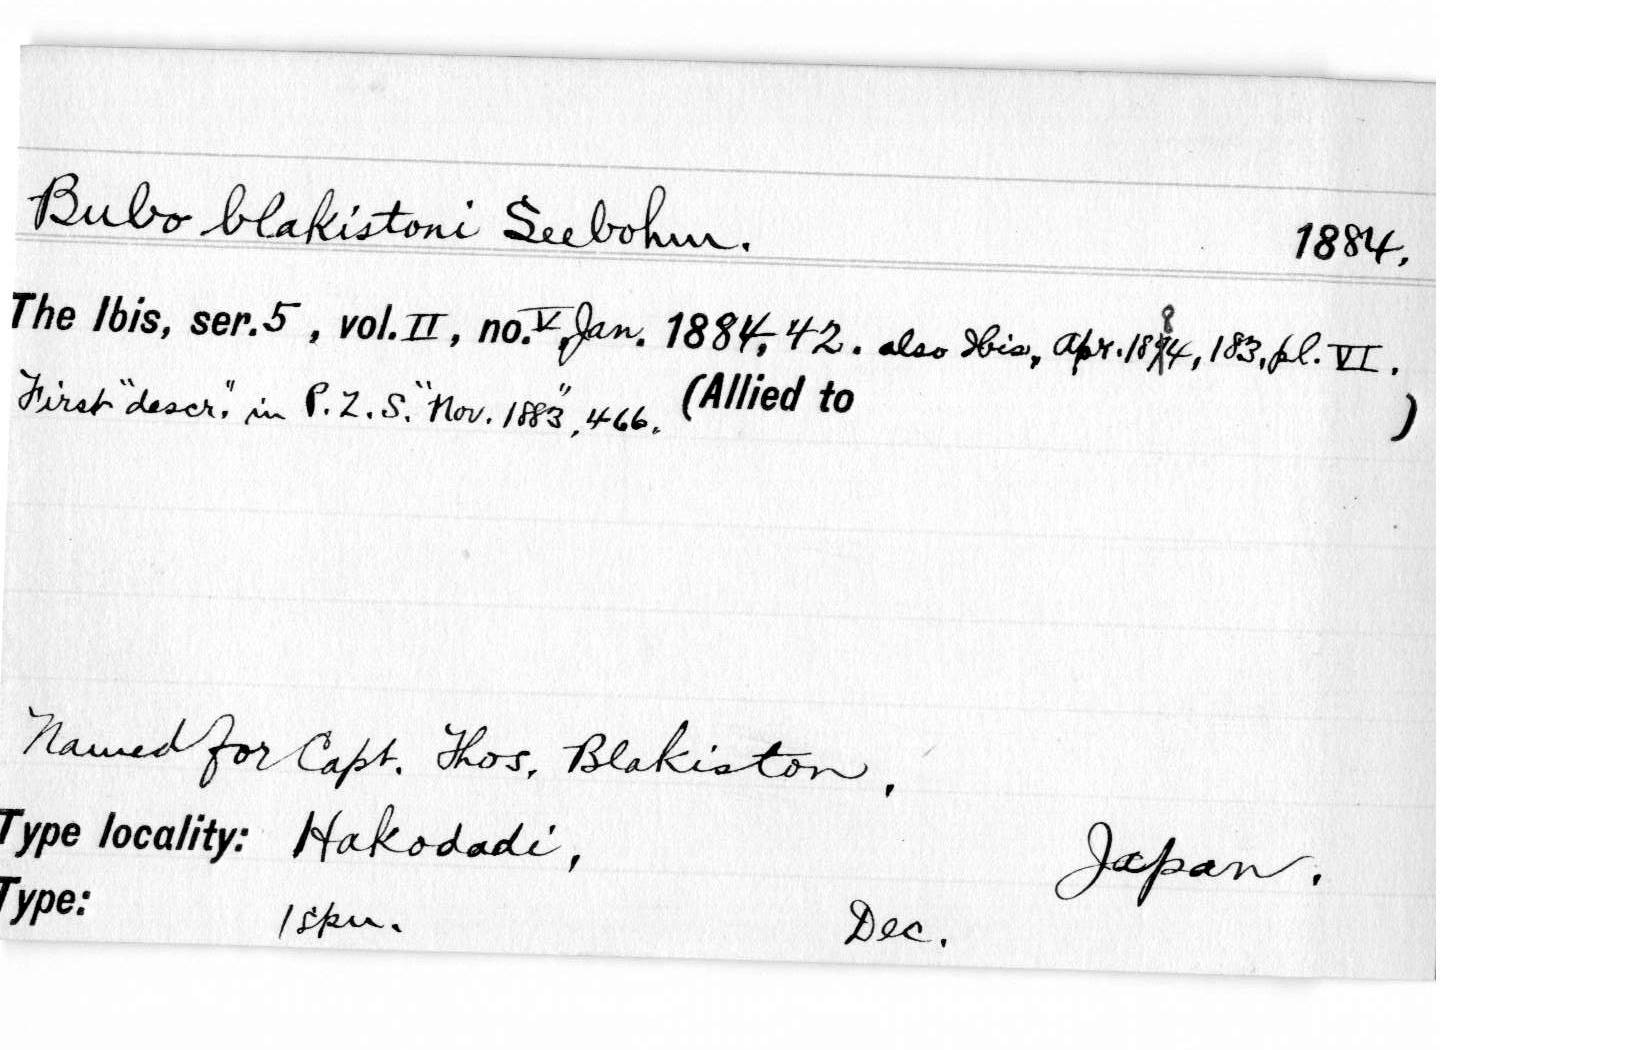 Bubo blakistoni Seebohm. 1884.
The Ibis, ser. 5, vol. II, no. V, Jan. 1884, 42. also Ibis, Apr. 1884, 183, pl. VI.
First "descr." in P.Z.S. "Nov. 1883", 466. (Allied to )
Named for Capt. Thos. Blakiston,
Type locality: Hakodadi, Japan.
Type: 1 spm. Dec.